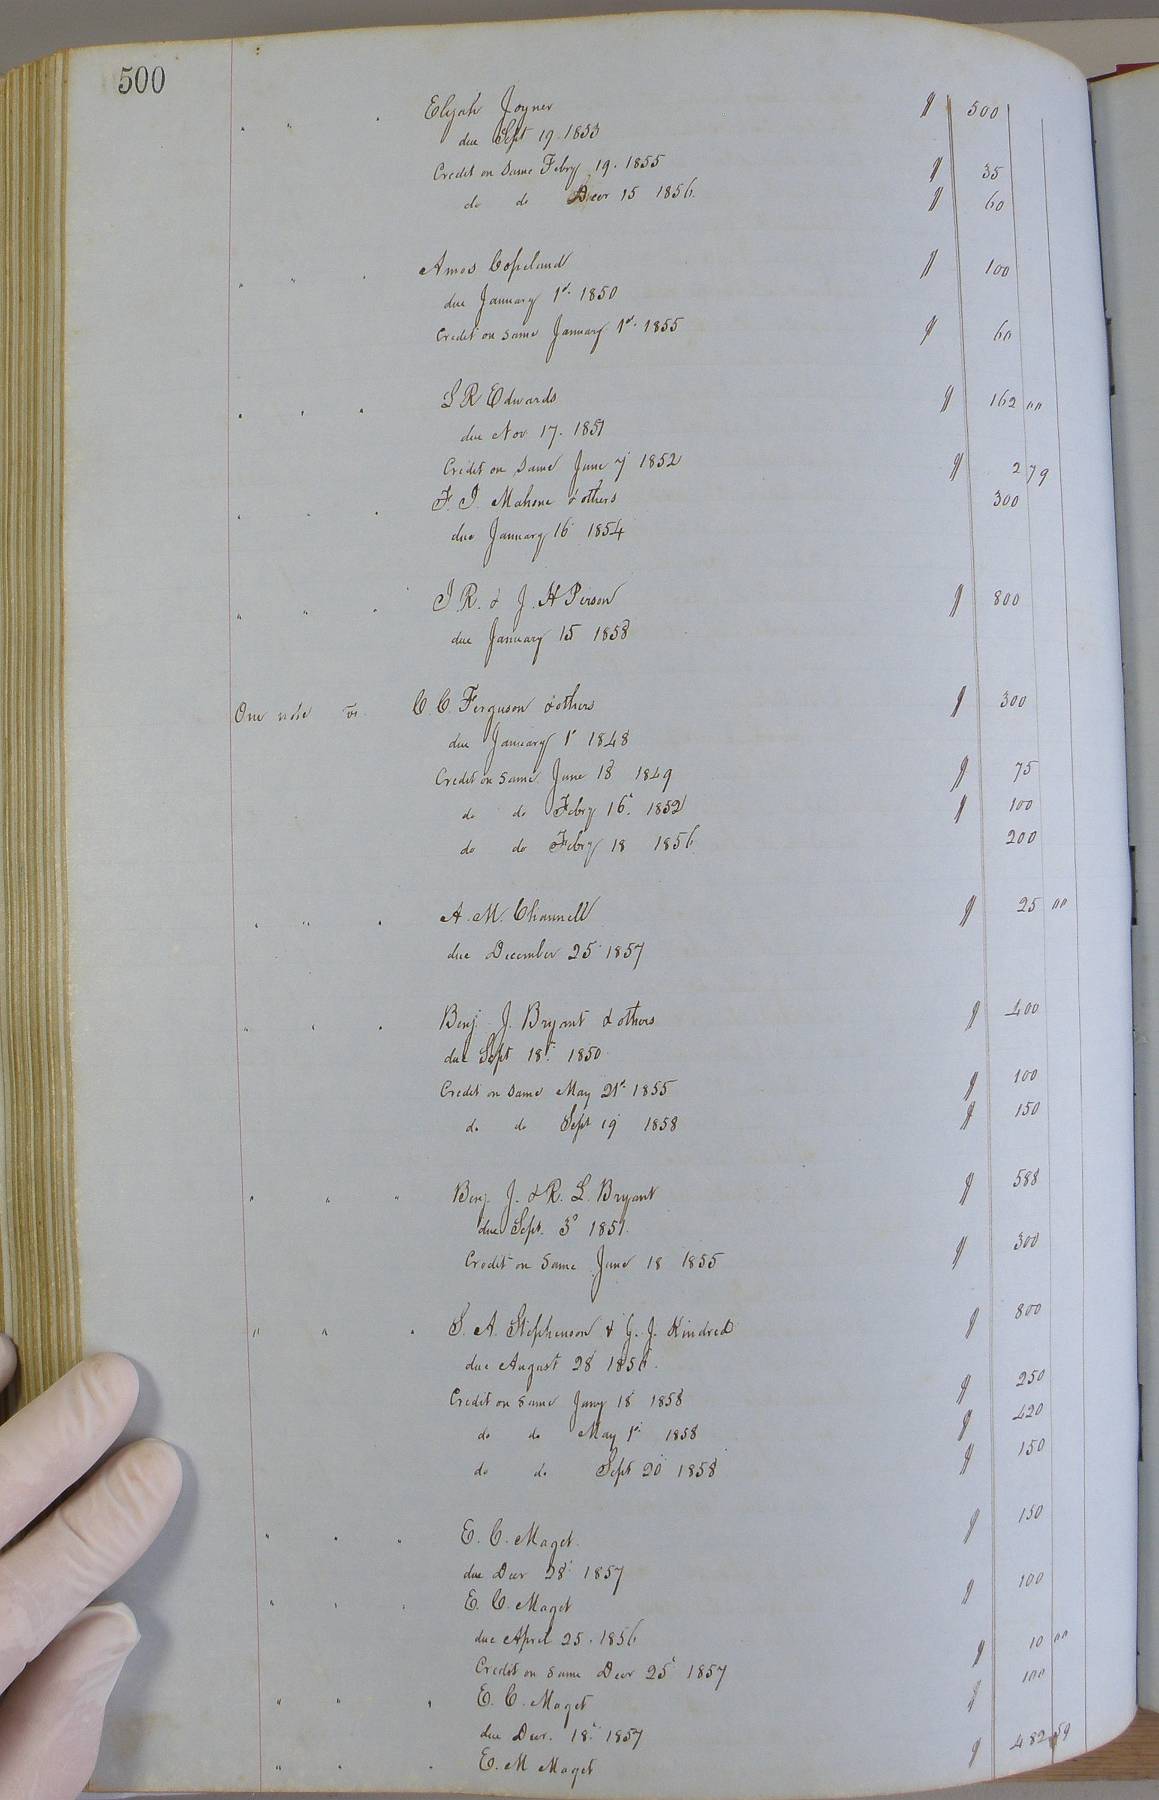 500
" " " Elijah Joyner $ 500
due Sept 19. 1853
Credit on Same Febry 19. 1855 $ 35
do do Decr 15 1856. $ 60
" " " Amos Copeland $ 100
due January 1st. 1850
Credit on same January 1st. 1855 $ 60
" " " S R Edwards $ 162 00
due Nov 17. 1851
Credit on Same June 7 1852 $ 2 79
" " " F. J. Mahone & others 300
due January 16 1854
" " " J. R. & J. H Person $ 800
due January 15 1858
One note vs. C. C. Ferguson & others $ 300
due January 1st 1848
Credit on Same June 18 1849 $ 75
do do Febry 16. 1852 $ 100
do do Febry 18 1856 200
" " " A. M. Channell $ 25 00
due December 25 1857
" " " Benj. J. Bryant & others $ 400
due Sept 18th. 1850
Credit on Same May 21st. 1855 $ 100
do do Sept 19 1858 $ 150
" " " Benj. J. & R. L. Bryant $ 588
due Sept. 3d 1851.
Credit on Same June 18 1855 $ 300
" " " S. A. Stephenson & G. J. Kindred $ 800
due August 28 1856.
Credit on Same Jany 18 1858 $ 250
do do May 1st 1858 $ 420
do do Sept 20 1858 $ 150
" " " E. C. Maget. $ 150
due Decr 28 1857
" " " E. C. Maget $ 100
due April 25. 1856
Credit on same Decr 25 1857 $ 10 00
" " " E. C. Maget $ 100
due Decr. 18. 1857
" " " E. M Maget $ 482 59